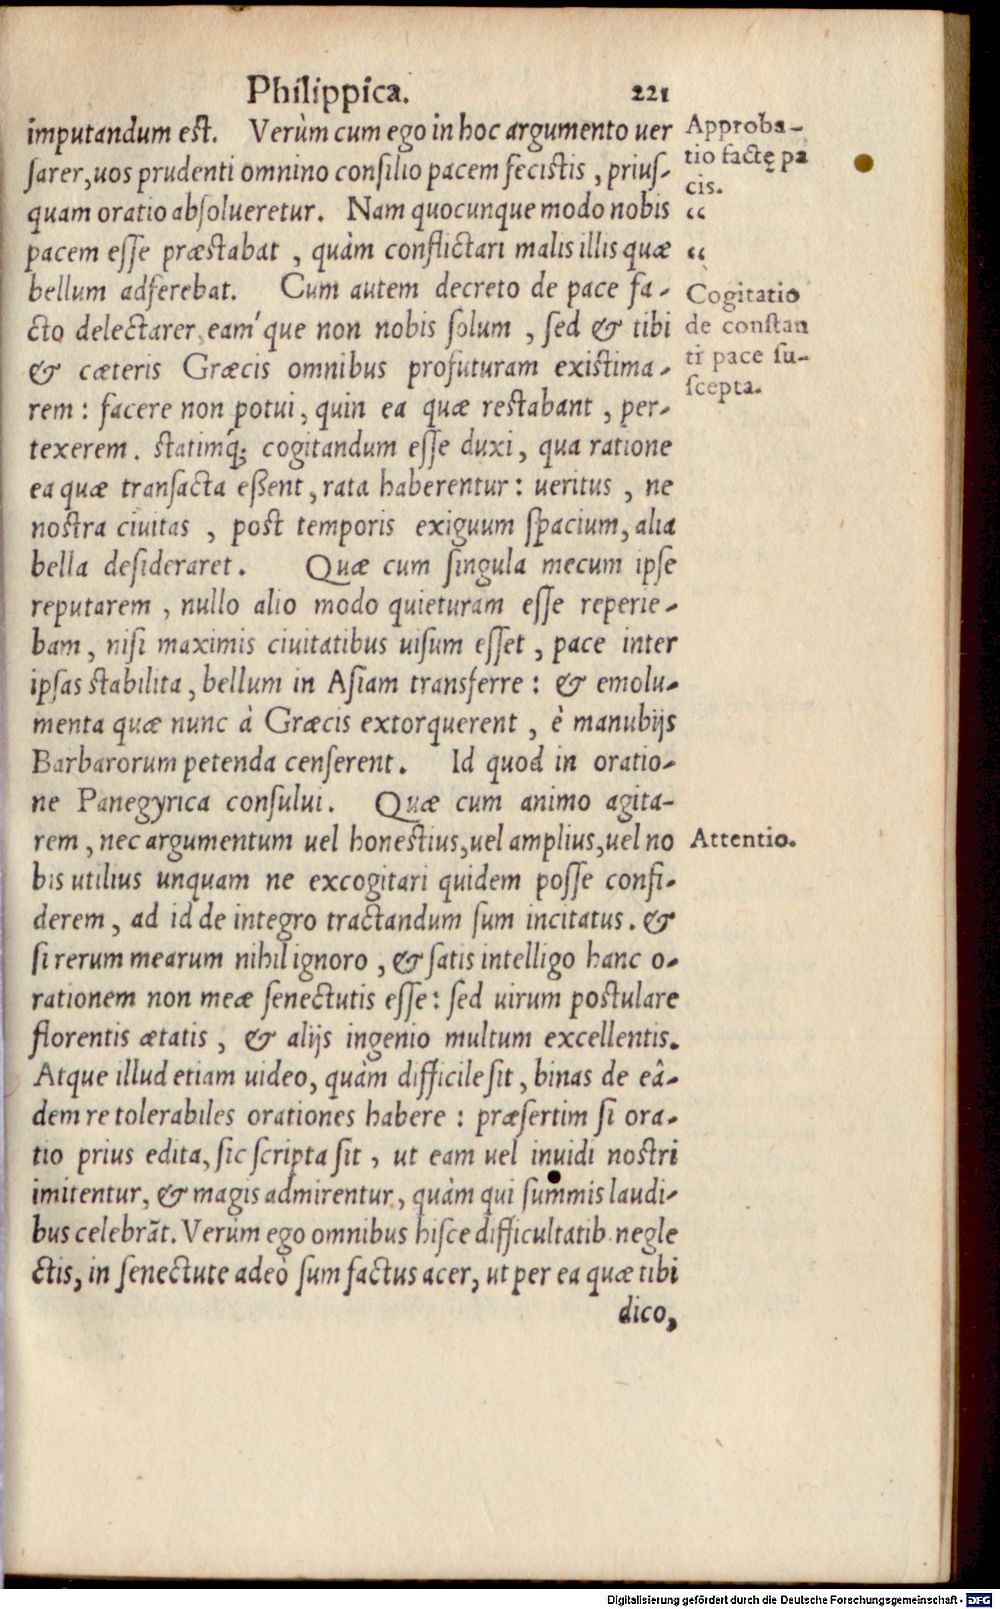 Philippica. 221
imputandum est. Verùm cum ego in hoc argumento uer
sarer, uos prudenti omnino consilio pacem fecistis, prius-
quam oratio absolueretur. Nam quocunque modo nobis
pacem esse præstabat, quàm conflictari malis illis quæ
bellum adferebat. Cum autem decreto de pace fa-
cto delectarer, eam'que non nobis solum, sed & tibi
& cæteris Græcis omnibus profuturam existima-
rem: facere non potui, quin ea quæ restabant, per-
texerem. statimq́; cogitandum esse duxi, qua ratione
ea quæ transacta eßent, rata haberentur: ueritus, ne
nostra ciuitas, post temporis exiguum spacium, alia
bella desideraret. Quæ cum singula mecum ipse
reputarem, nullo alio modo quieturam esse reperie-
bam, nisi maximis ciuitatibus uisum esset, pace inter
ipsas stabilita, bellum in Asiam transferre: & emolu-
menta quæ nunc à Græcis extorquerent, è manubijs
Barbarorum petenda censerent. Id quod in oratio-
ne Panegyrica consului. Quæ cum animo agita-
rem, nec argumentum uel honestius, uel amplius, uel no
bis utilius unquam ne excogitari quidem posse confi-
derem, ad id de integro tractandum sum incitatus. &
si rerum mearum nihil ignoro, & satis intelligo hanc o-
rationem non meæ senectutis esse: sed uirum postulare
florentis ætatis, & alijs ingenio multum excellentis.
Atque illud etiam uideo, quàm difficile sit, binas de eâ-
dem re tolerabiles orationes habere: præsertim si ora-
tio prius edita, sic scripta sit, ut eam uel inuidi nostri
imitentur, & magis admirentur, quàm qui summis laudi-
bus celebrãt. Verùm ego omnibus hisce difficultatib. negle
ctis, in senectute adeò sum factus acer, ut per ea quæ tibi
dico,
Approba-
tio factę pa
cis.
“
“
Cogitatio
de constan
ti pace su-
scepta.
Attentio.
Digitalisierung gefördert durch die Deutsche Forschungsgemeinschaft - DFG